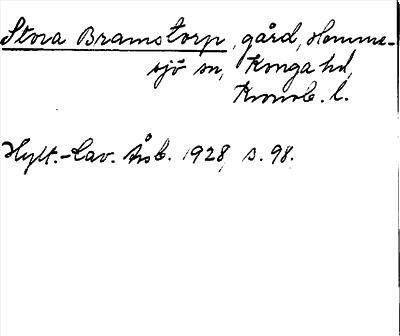 Stora Bramstorp, gård, Hemme-
sjö sn, Konga hd,
Kronob. l.
Hylt.-Cav. Årsb. 1928, s. 98.